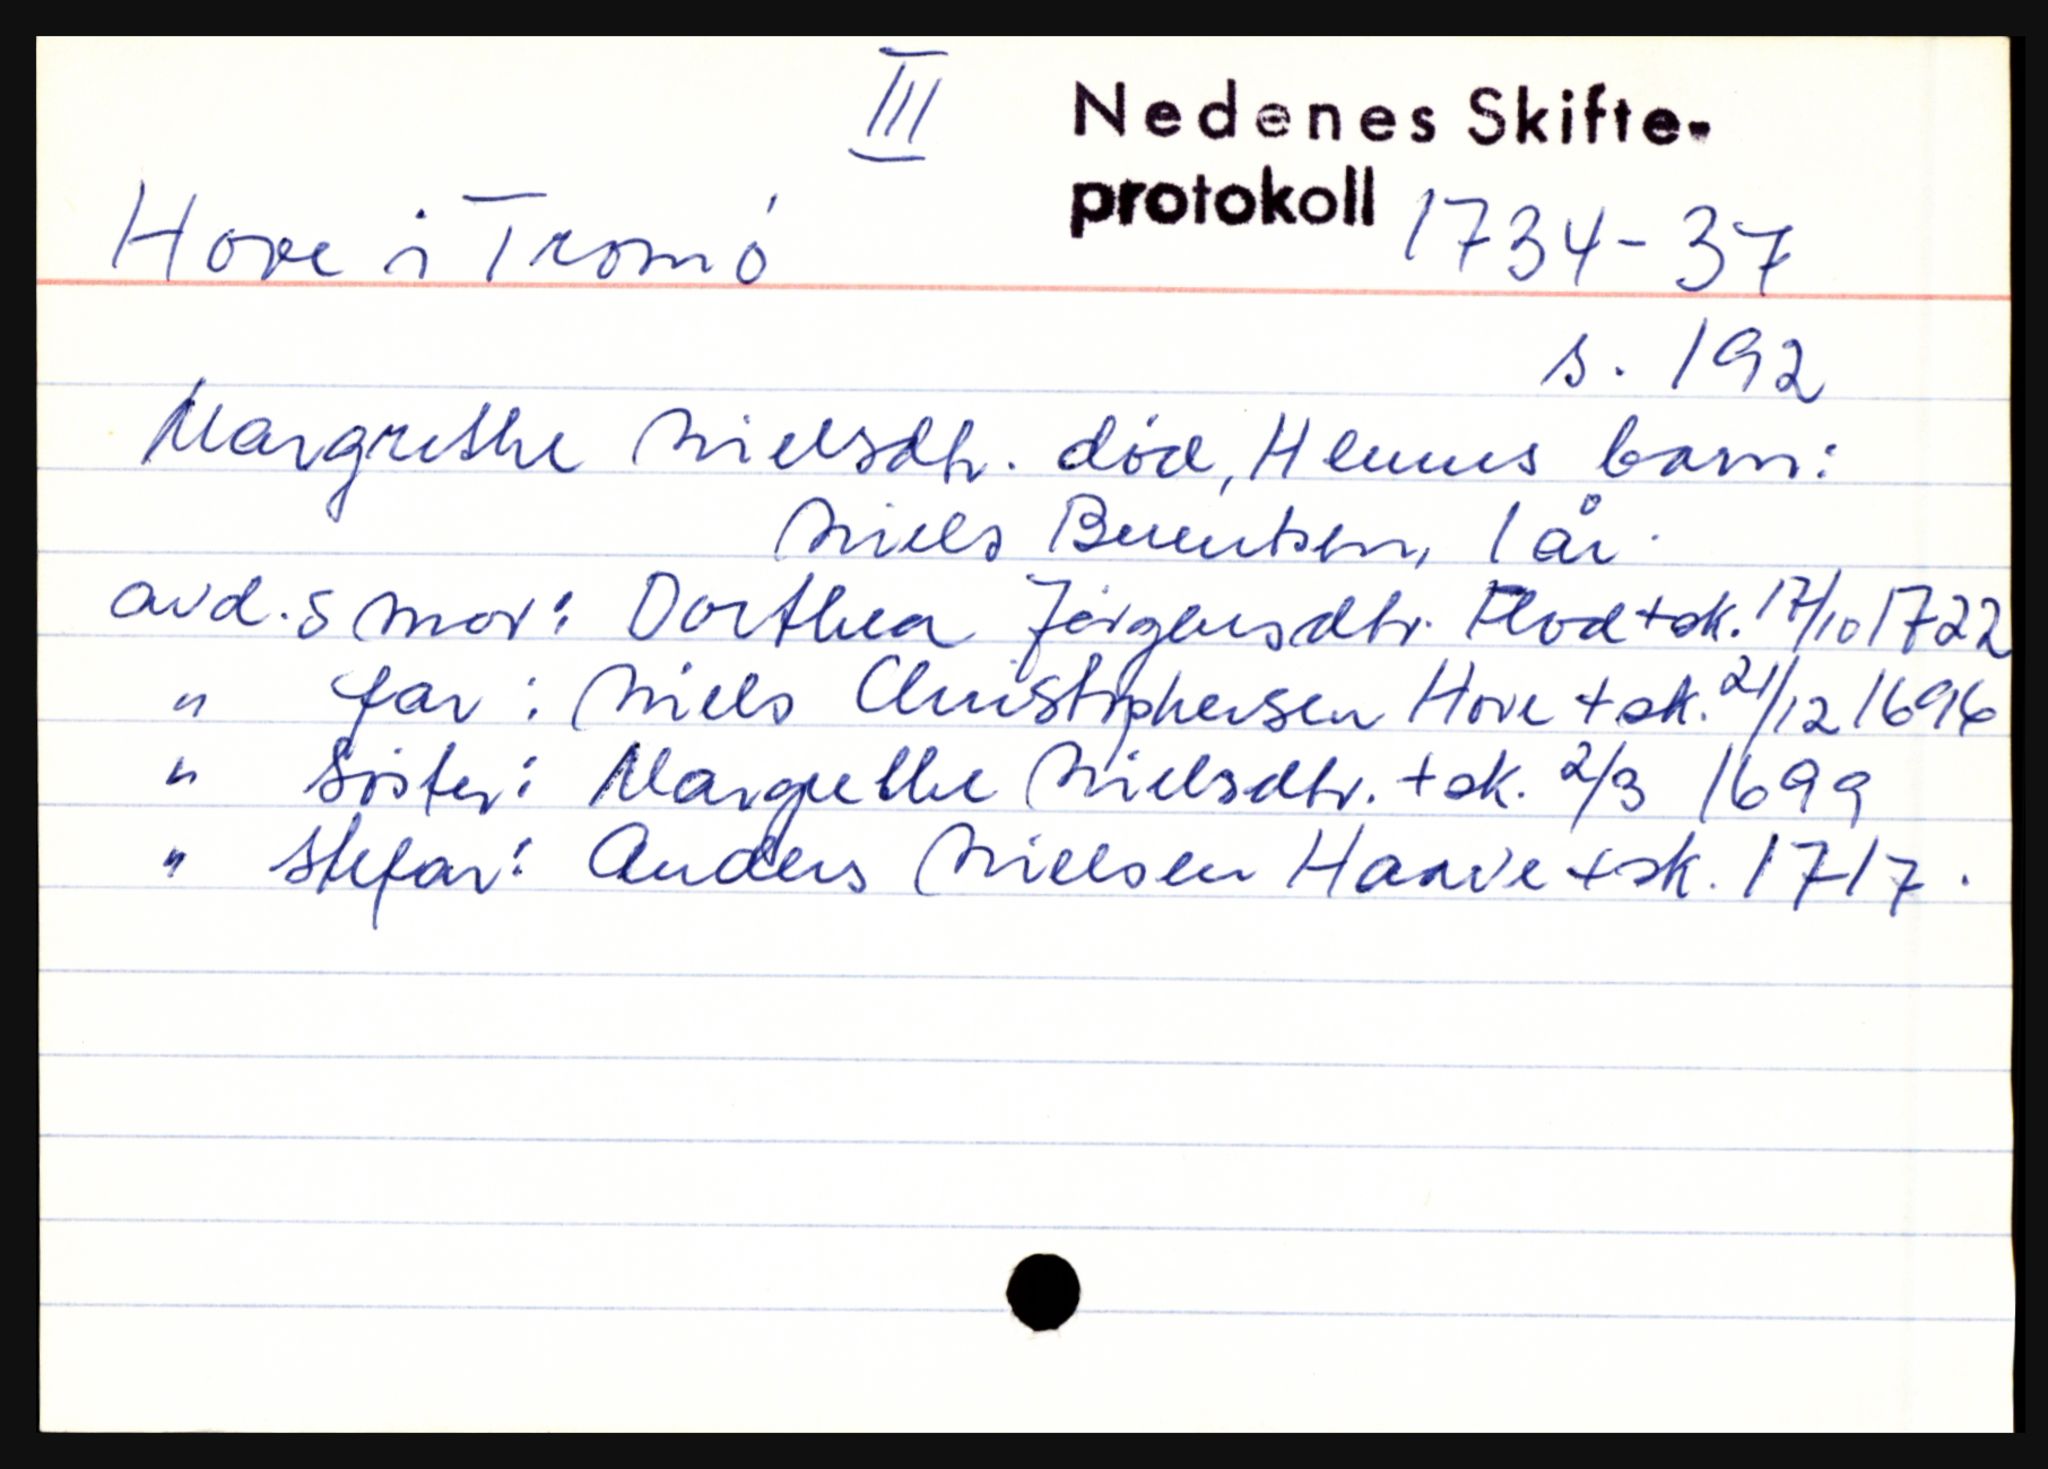 III
Nedenes Skifte-
protokoll 1734-37
Hove i Tromö
s. 192
Margrethe Nielsdtr. död, Hennes barn:
Niels Berentsen, 1 år.
avd.s mor: Dorthea Jörgensdtr. Flod + sk. 17/10 1722
" far: Niels Christophersen Hove + sk. 21/12 1696
" söster: Margrethe Nielsdtr. + sk. 2/3 1699
" stefar: Anders Nielsen Haave + sk. 1717.